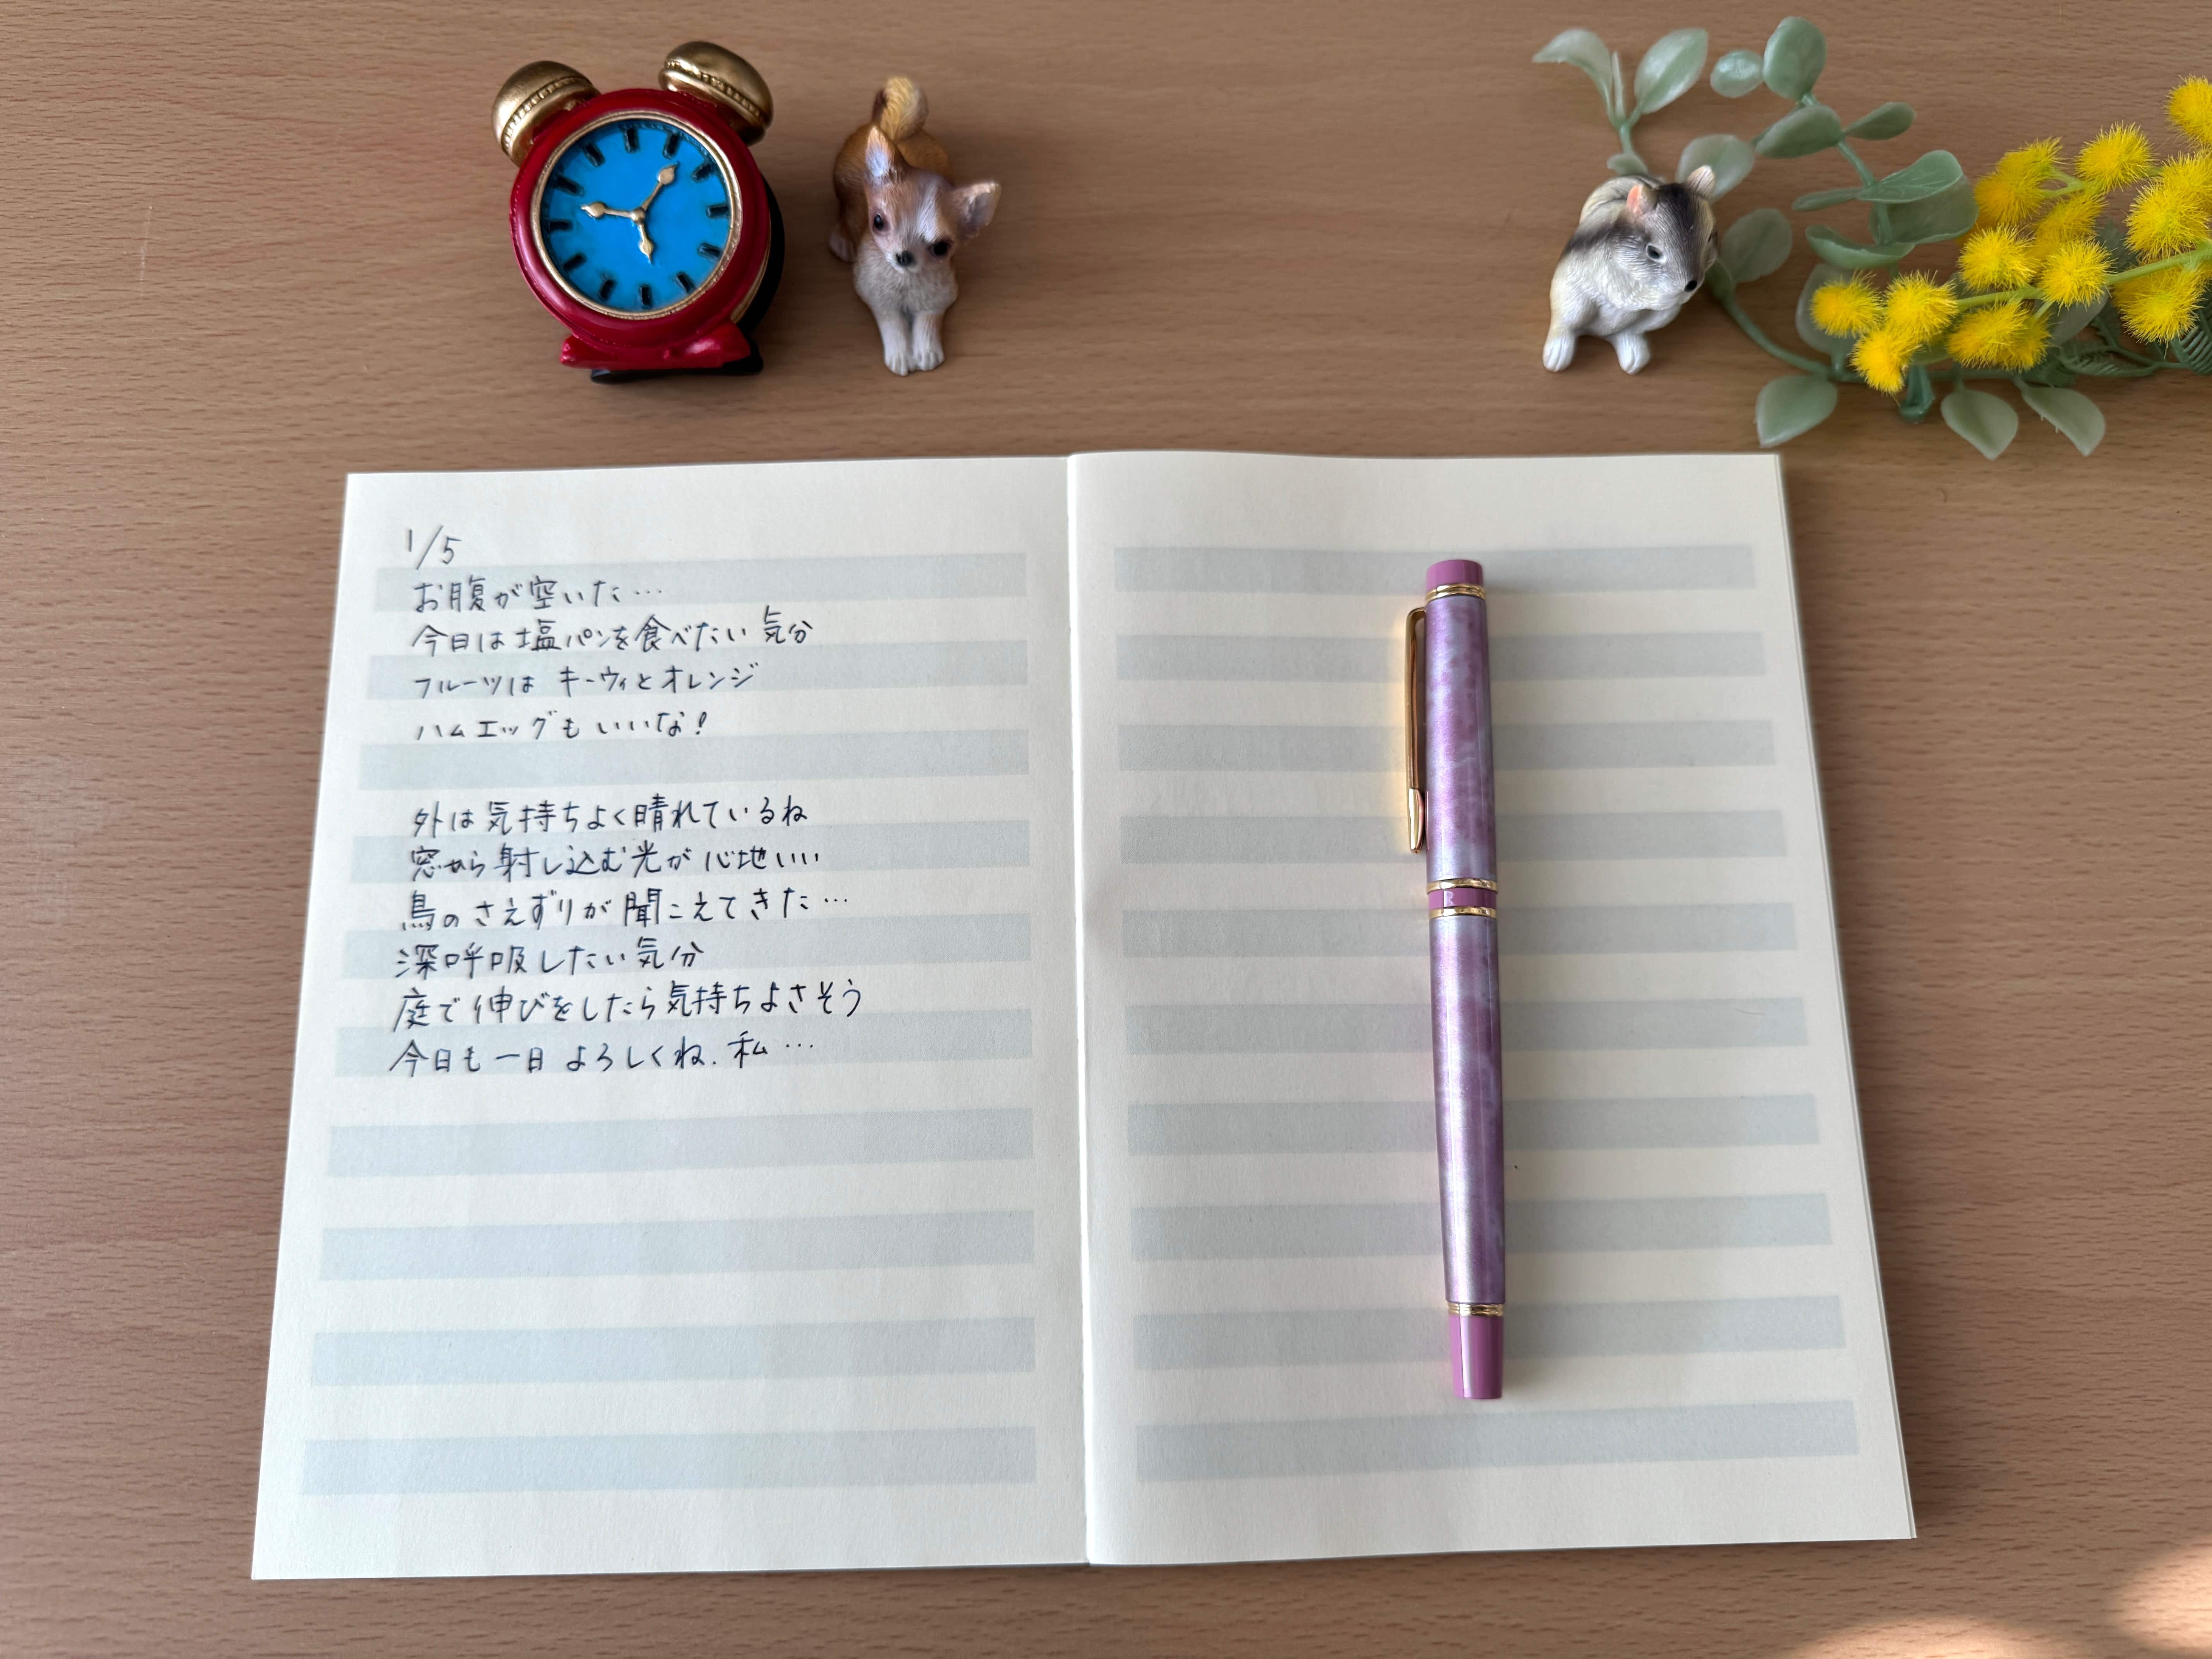 1/5
お腹が空いた…
今日は塩パンを食べたい気分
フルーツは キーウィとオレンジ
ハムエッグもいいな!
外は気持ちよく晴れているね
窓から射し込む光が心地いい
鳥のさえずりが聞こえてきた…
深呼吸したい気分
庭で伸びをしたら気持ちよさそう
今日も一日よろしくね.私…
R